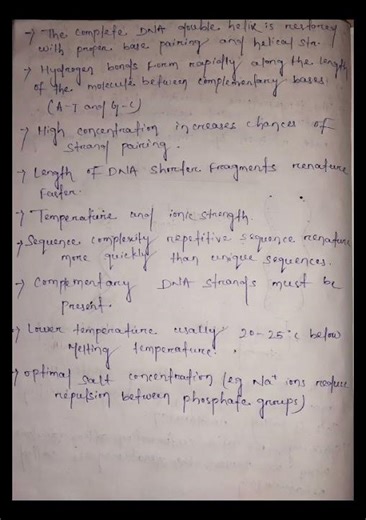 → The complete DNA double helix is restored
with proper base pairing and helical str.
→ Hydrogen bonds form rapidly along the length
of the molecule between complementary bases.
(A-T and G-C)
→ High concentration increases chances of
strand pairing.
→ Length of DNA shorter fragments renature
faster.
→ Temperature and ionic strength.
→ Sequence complexity repetitive sequence renature
more quickly than unique sequences.
→ Complementary DNA strands must be
present.
→ Lower temperature usally 20-25°c below
melting temperature.
→ optimal salt concentration (eg Na+ ions reduce
repulsion between phosphate groups)